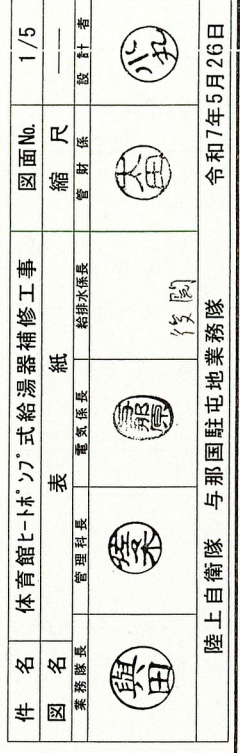 件名 体育館ﾋｰﾄﾎﾟﾝﾌﾟ式給湯器補修工事 図面No. 1/5
図名 表紙 縮尺 ―
業務隊長 管理科長 電気係長 給排水係長 管財係 設計者
後閲
陸上自衛隊 与那国駐屯地業務隊 令和7年5月26日